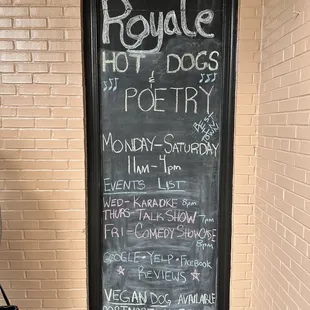 Royale
HOT DOGS
&
POETRY
BEST IN TOWN
MONDAY-SATURDAY
11AM-4PM
EVENTS LIST
WED-KARAOKE 8PM
THURS-TALK SHOW 7PM
FRI-COMEDY SHOWCASE
8PM
GOOGLE•YELP•FACEBOOK
REVIEWS
VEGAN DOG AVAILABLE